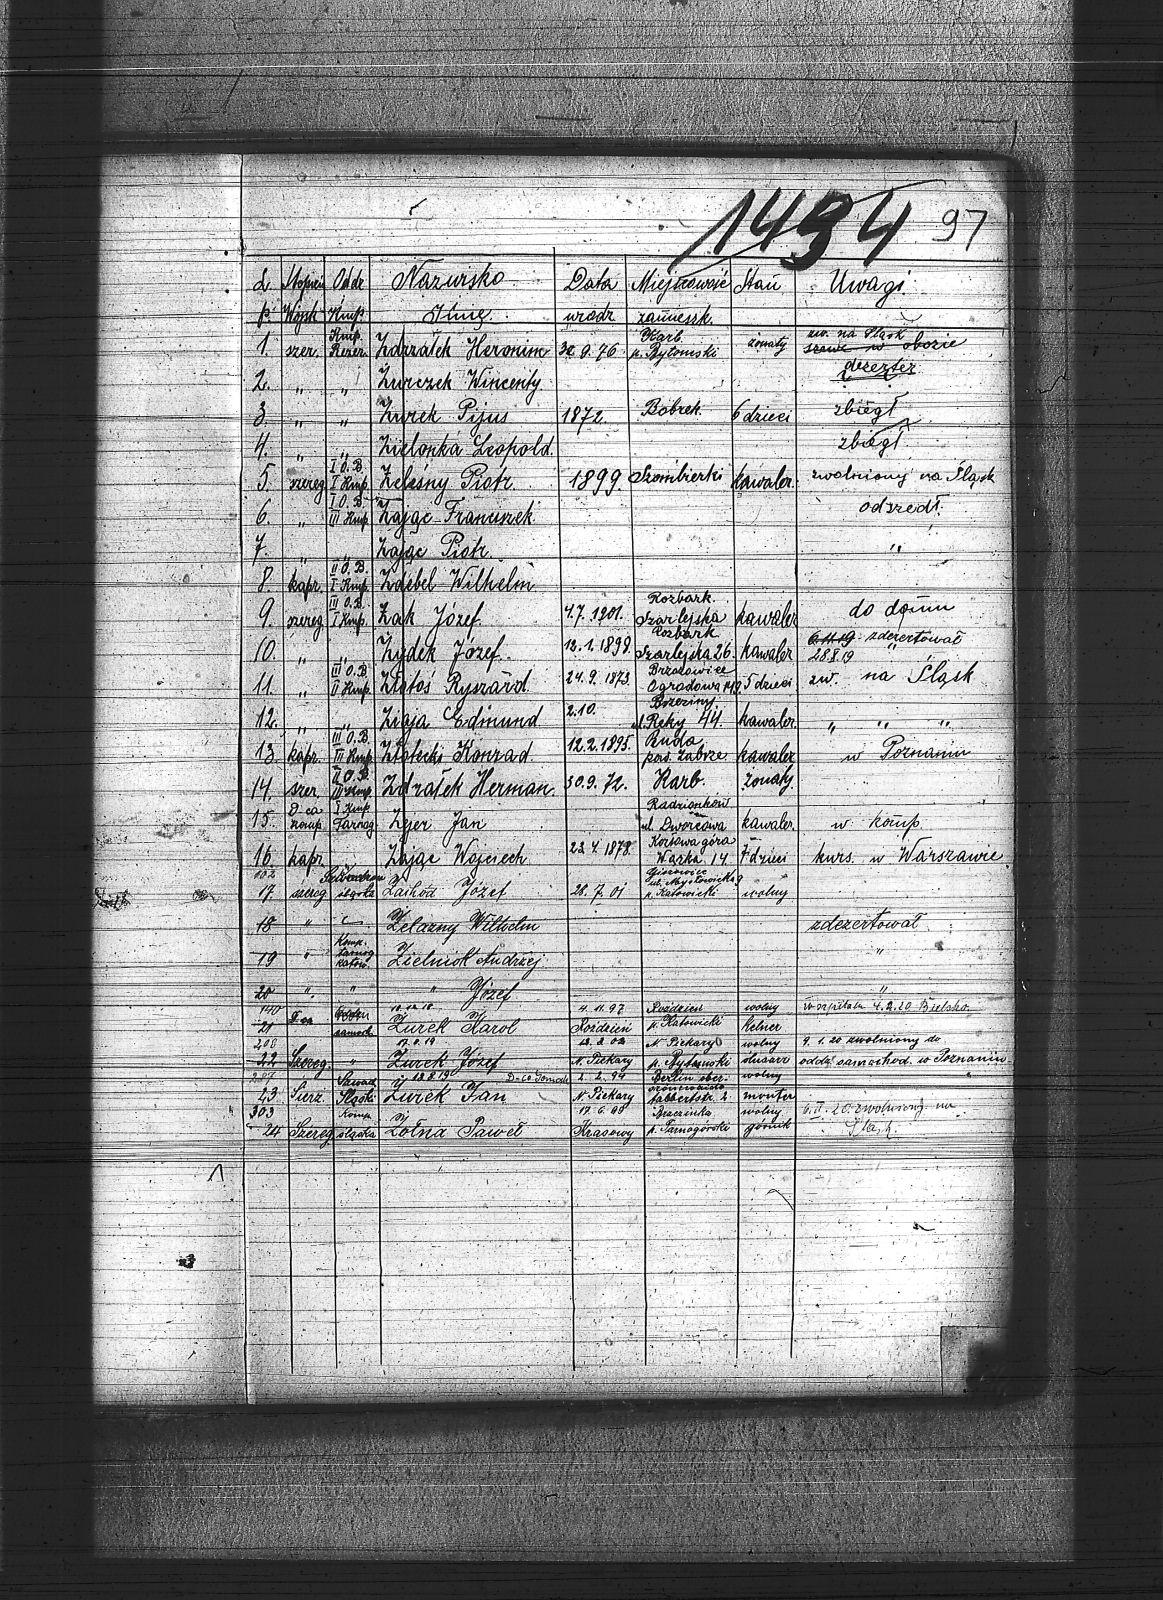 1434 97
L. Stopień Oddz Nazwisko Data Miejscowość Stan Uwagi
p. Wojsk Kmp. Imię urodz zamieszk.
Kmp. Karb. zw. na Śląsk
1. szer. Rezer. Zdrzałek Heronim 30.9.76 p. Bytomski żonaty w obozie
dezerter
2. " " Żurczek Wincenty
3. " " Żurek Pijus 1872. Bobrek. 6 dzieci zbiegł
4. " " Zielonka Leopold. zbiegł
I O.B.
5. szereg I Kmp. Żeleśny Piotr 1899. Szombierki kawaler. zwolniony na Śląsk
I O.B.
6. " III Kmp. Zając Franciszek odszedł.
7. " " Zając Piotr. "
II O.B.
8. kapr. I Kmp. Zdebel Wilhelm
III O.B. Rozbark.
9. szereg I Kmp. Żak Józef 4.7.1901. Szarlejska kawaler do domu
Rozbark 6.11.19 zdezertował
10. " " Żydek Józef. 12.1.1899. Szarlejska 26. kawaler 28.8.19 "
III O.B. Brzozowice
11. " II Kmp. Złotoś Ryszard. 24.9.1873. Ogrodowa 5 dzieci zw. na Śląsk
Brzeziny
12. " " Ziaja Edmund 2.10. ul. Reky 44. kawaler. " " "
III O.B. Ruda
13. kapr. III Kmp. Złotecki Konrad 12.2.1895. pow. Zabrze kawaler w Poznaniu
II O.B.
14. szer. III Kmp. Zdrałek Herman. 30.9.72. Karb. żonaty.
D-ca I Kmp Radzionków
15. komp. Tarnog Zyer Jan ul. Dworcowa kawaler. w komp.
Kozłowa góra
16 kapr. Zając Wojciech 23.4.1878. Wąska 14. 7 dzieci kurs. w Warszawie
102 Giszowice
ul. Mysłowicka 9
17. szereg śląska Zachod Józef 28.7.01 p. Katowicki wolny
18 " Żelazny Wilhelm zdezertował
Komp.
tarnog
19 " Zielniok Andrzej "
20 " " " Józef "
140 4.11.97 Roździeń wolny w szpitalu 4.2.20 Bielsko.
21 Żurek Karol Roździeń p. Katowicki kelner
208 N. Piekary wolny 9.1.20 zwolniony do
22 Szereg. " Żurek Józef N. Piekary p. Bytomski ślusarz oddz. samochod. w Poznaniu
2.2.94 Berlin ober. wolny "
23 Sierż. Śląski Żurek Jan N. Piekary 2. monter
303 Komp. 17.6.99 Brzezinka wolny 6.II.20. zwolniony na
24 Szereg śląska Żołna Paweł Krasowy p. Tarnogórski górnik Śląsk.